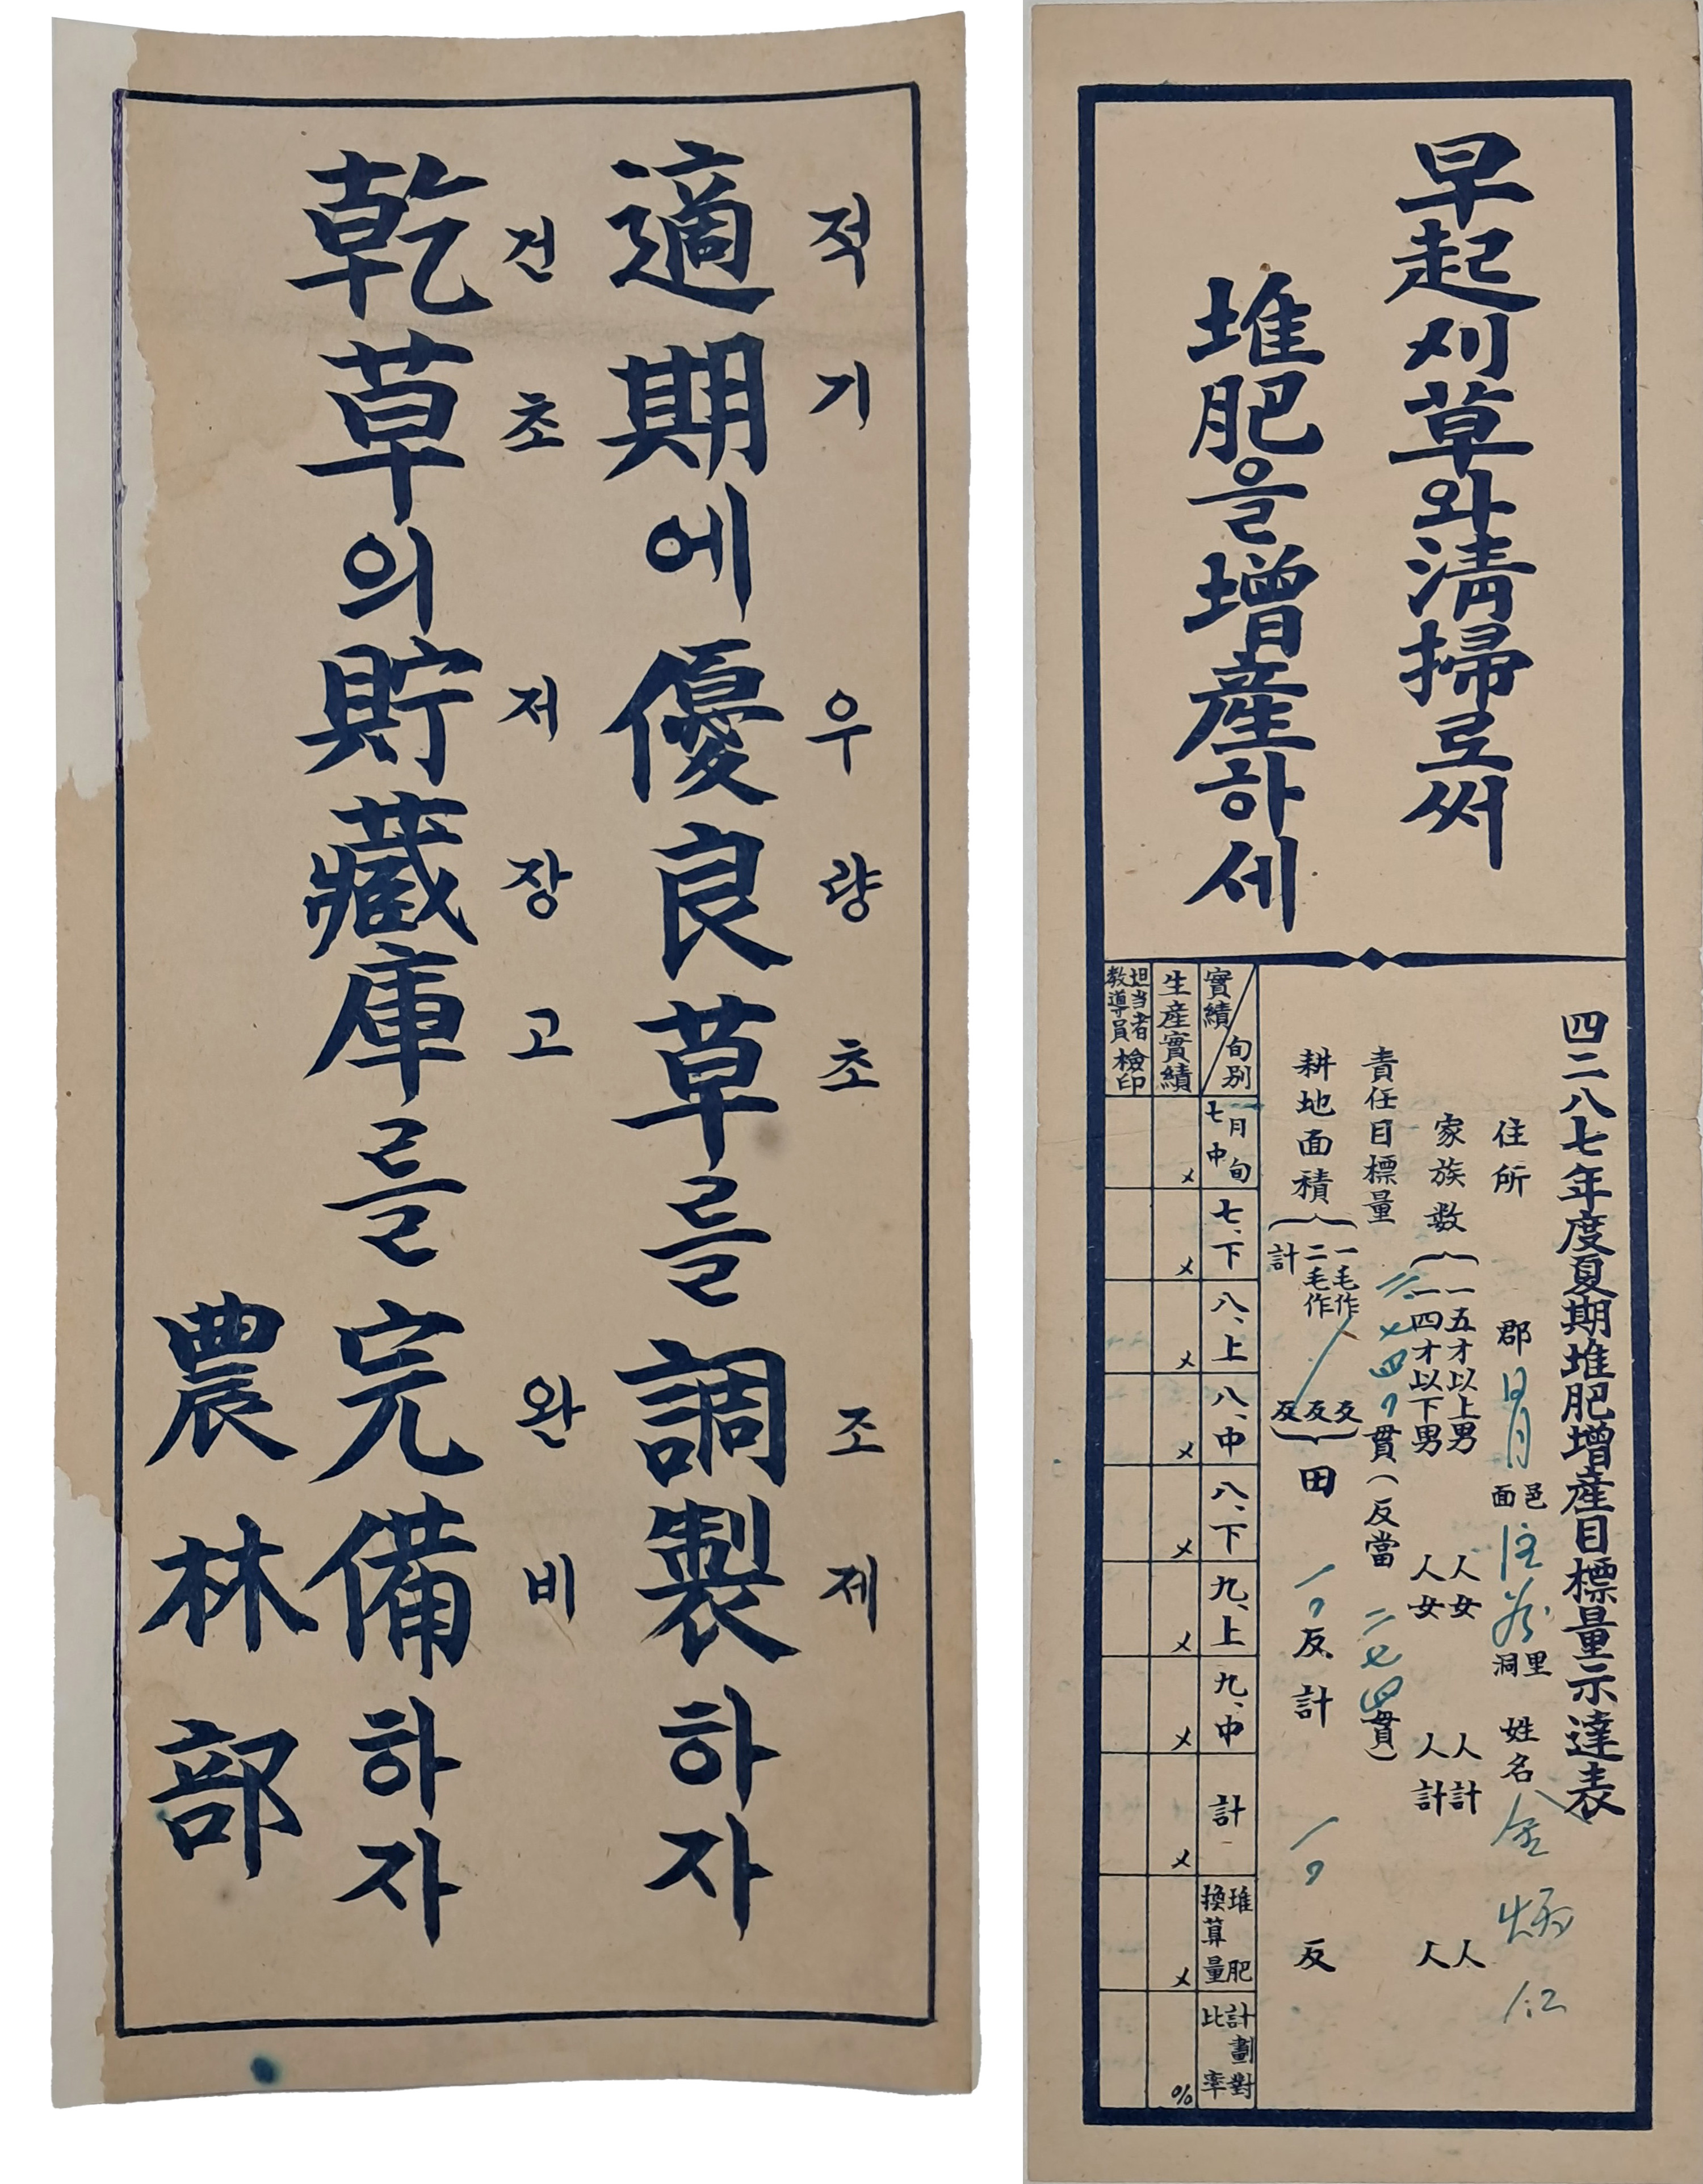 適期에優良草를調製하자
적기 우량초 조제
乾草의貯藏庫를完備하자
건초 저장고 완비
農林部
早起刈草와淸掃로써
堆肥을增産하세
四二八七年度夏期堆肥增産目標量示達表
住所 郡 面邑 洞里 姓名 金炳
家族数 一五才以上男 人女 人計 人
一四才以下男 人女 人計 人
責任目標量 貫(反當 二七四貫)
耕地面積 一毛作 反
二毛作 反
計 反
田 反 計 反
實績 旬別 七月中旬 七、下 八、上 八、中 八、下 九、上 九、中 計 堆肥換算量 計劃對比率
生産實績 メ メ メ メ メ メ メ メ メ %
担当者
教導員 檢印